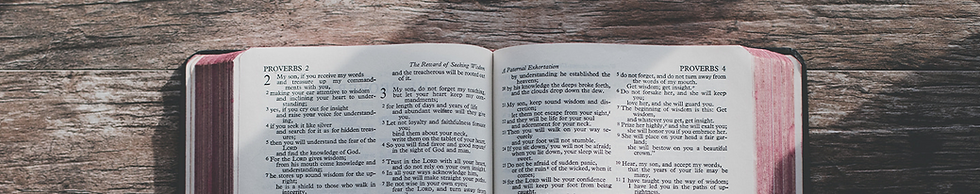 PROVERBS 2
The Reward of Seeking Wisdom
2 My son, if you receive my words
and treasure up my command-
ments with you,
2 making your ear attentive to wisdom
and inclining your heart to under-
standing;
3 yes, if you cry out for insight
and raise your voice for understand-
ing,
4 if you seek it like silver
and search for it as for hidden treas-
ures;
5 then you will understand the fear of the
LORD
and find the knowledge of God.
6 For the LORD gives wisdom;
from his mouth come knowledge and
understanding;
7 he stores up sound wisdom for the up-
right;
he is a shield to those who walk in
integrity,
and the treacherous will be rooted out
of it.
3 My son, do not forget my teaching,
but let your heart keep my com-
mandments;
2 for length of days and years of life
and abundant welfare will they give
you.
3 Let not loyalty and faithfulness forsake
you;
bind them about your neck,
write them on the tablet of your heart.
4 So you will find favor and good repute
in the sight of God and man.
5 Trust in the LORD with all your heart,
and do not rely on your own insight.
6 In all your ways acknowledge him,
and he will make straight your paths.
7 Be not wise in your own eyes;
fear the LORD, and turn away from
A Paternal Exhortation
PROVERBS 4
by understanding he established the
heavens;
20 by his knowledge the deeps broke forth,
and the clouds drop down the dew.
21 My son, keep sound wisdom and dis-
cretion;
let them not escape from your sight,
22 and they will be life for your soul
and adornment for your neck.
23 Then you will walk on your way se-
curely
and your foot will not stumble.
24 If you sit down, you will not be afraid;
when you lie down, your sleep will be
sweet.
25 Do not be afraid of sudden panic,
or of the ruin of the wicked, when it
comes;
26 for the LORD will be your confidence
and will keep your foot from being
caught.
5 do not forget, and do not turn away from
the words of my mouth.
Get wisdom; get insight.
6 Do not forsake her, and she will keep
you;
love her, and she will guard you.
7 The beginning of wisdom is this: Get
wisdom,
and whatever you get, get insight.
8 Prize her highly, and she will exalt you;
she will honor you if you embrace her.
9 She will place on your head a fair gar-
land;
she will bestow on you a beautiful
crown."
10 Hear, my son, and accept my words,
that the years of your life may be
many.
11 I have taught you the way of wisdom;
I have led you in the paths of up-